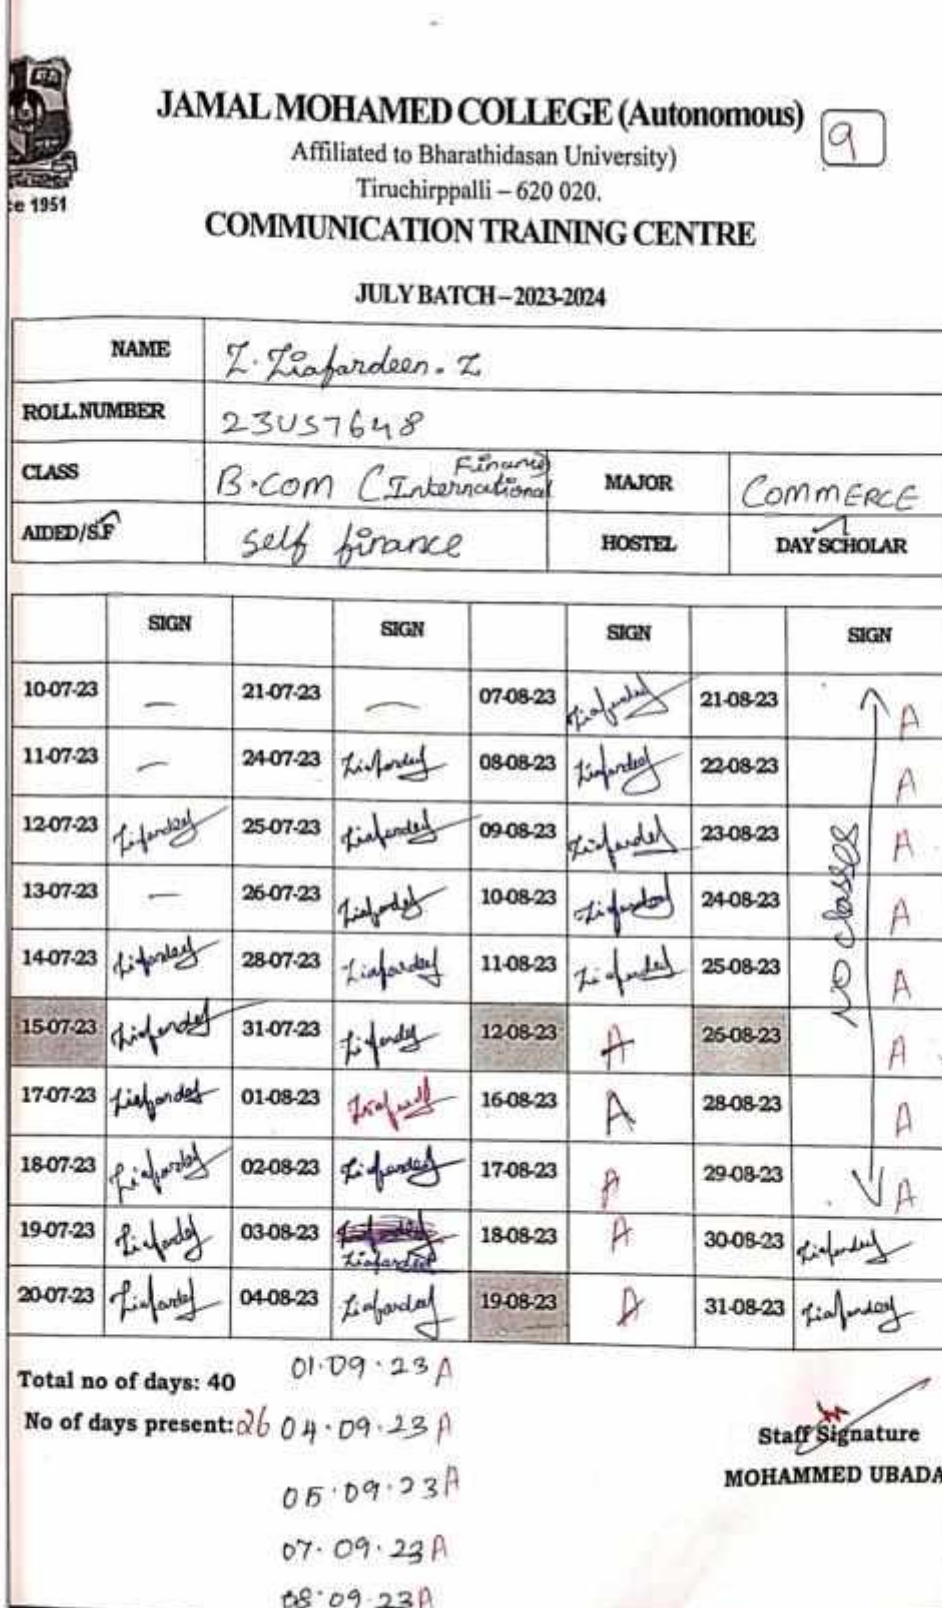 ce 1951
JAMAL MOHAMED COLLEGE (Autonomous)
9
Affiliated to Bharathidasan University)
Tiruchirppalli – 620 020.
COMMUNICATION TRAINING CENTRE
JULY BATCH – 2023-2024
NAME Z. Ziafardeen. Z
ROLL NUMBER 23US7648
CLASS B.COM (International Finance) MAJOR COMMERCE
AIDED/S.F self finance HOSTEL DAY SCHOLAR
SIGN SIGN SIGN SIGN
10-07-23 — 21-07-23 — 07-08-23 Ziafardeen 21-08-23 A
11-07-23 — 24-07-23 Ziafardeen 08-08-23 Ziafardeen 22-08-23 A
12-07-23 Ziafardeen 25-07-23 Ziafardeen 09-08-23 Ziafardeen 23-08-23 A
13-07-23 — 26-07-23 Ziafardeen 10-08-23 Ziafardeen 24-08-23 A
14-07-23 Ziafardeen 28-07-23 Ziafardeen 11-08-23 Ziafardeen 25-08-23 A
NO classes
15-07-23 Ziafardeen 31-07-23 Ziafardeen 12-08-23 A 26-08-23 A
17-07-23 Ziafardeen 01-08-23 Ziafardeen 16-08-23 A 28-08-23 A
18-07-23 Ziafardeen 02-08-23 Ziafardeen 17-08-23 A 29-08-23 A
19-07-23 Ziafardeen 03-08-23 Ziafardeen 18-08-23 A 30-08-23 Ziafardeen
20-07-23 Ziafardeen 04-08-23 Ziafardeen 19-08-23 A 31-08-23 Ziafardeen
Total no of days: 40 01.09.23 A
No of days present: 26 04.09.23 A
Staff Signature
MOHAMMED UBADA
05.09.23 A
07.09.23 A
08.09.23 A